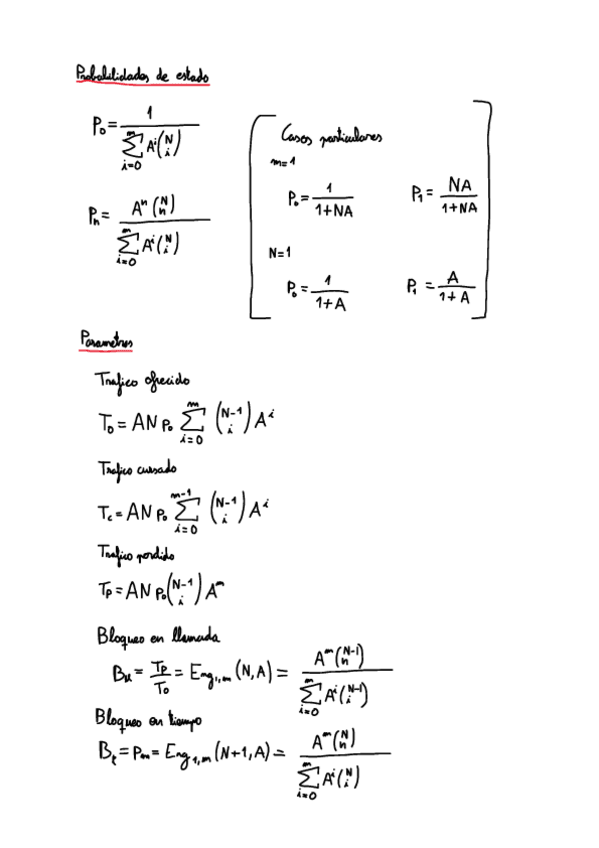 Probabilidades de estado
P₀ = 1 / ∑_{i=0}^{m} Aⁱ (N i)
Pₙ = Aⁿ (N n) / ∑_{i=0}^{m} Aⁱ (N i)
Casos particulares
m=1
P₀ = 1 / 1+NA    P₁ = NA / 1+NA
N=1
P₀ = 1 / 1+A    P₁ = A / 1+A
Parametros
Trafico ofrecido
T₀ = AN p₀ ∑_{i=0}^{m} (N-1 i) Aⁱ
Trafico cursado
T_c = AN p₀ ∑_{i=0}^{m-1} (N-1 i) Aⁱ
Trafico perdido
Tp = AN p₀ (N-1 i) Aᵐ
Bloqueo en llamada
B_ll = Tp / T₀ = Eng_{1,m} (N,A) = Aᵐ (N-1 n) / ∑_{i=0}^{m} Aⁱ (N-1 i)
Bloqueo en tiempo
B_t = Pm = Eng_{1,m} (N+1,A) = Aᵐ (N n) / ∑_{i=0}^{m} Aⁱ (N i)